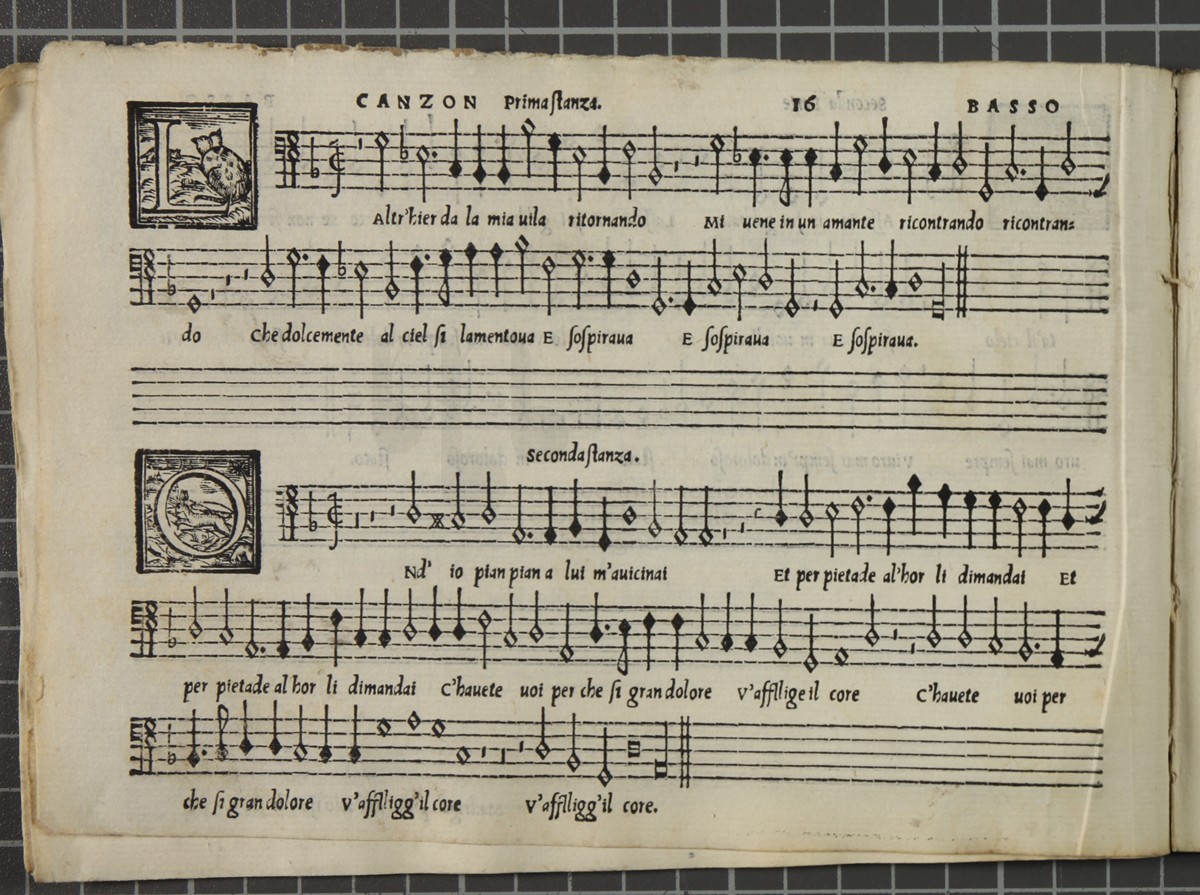 CANZON Prima stanza. 16 BASSO
L Altr'hier da la mia uila ritornando Mi uene in un amante ricontrando ricontran=
do Che dolcemente al ciel si lamentoua E sospiraua E sospiraua E sospiraua.
Seconda stanza.
O Nd' io pian pian a lui m'auicinai Et per pietade al'hor li dimandai Et
per pietade al hor li dimandai C'hauete uoi per che si gran dolore V'afflige il core C'hauete uoi per
che si gran dolore V'affligg'il core V'affligg'il core.